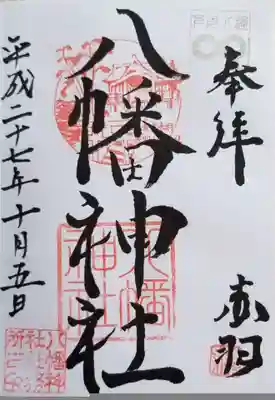 奉拝
赤羽
八幡神社
平成二十七年十月五日
八幡神社